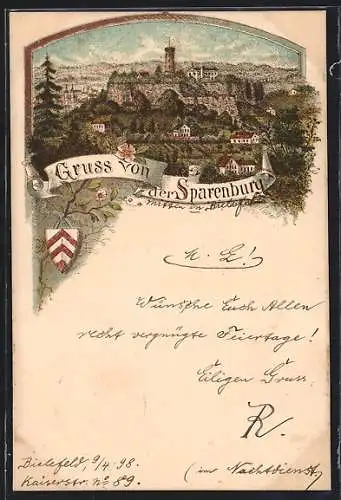 Gruss von
der Sparenburg
mitten in Bielefeld
M. L!
Wünsche Euch Allen
recht vergnügte Feiertage!
Eiligen Gruss
R.
(im Nachtdienst)
Bielefeld, 9/4. 98.
Kaiserstr. No 89.